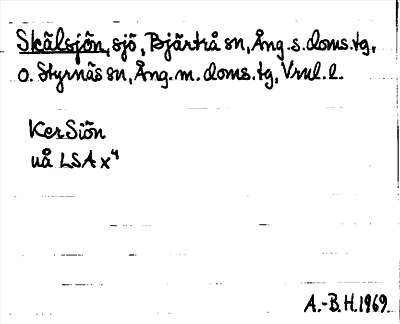 Skälsjön, sjö, Bjärtrå sn, Ång. s. doms. tg,
o. Styrnäs sn, Ång. m. doms. tg, Vrnl. l.
KerSiön
uå LSA x⁴
A.-B. H. 1969.